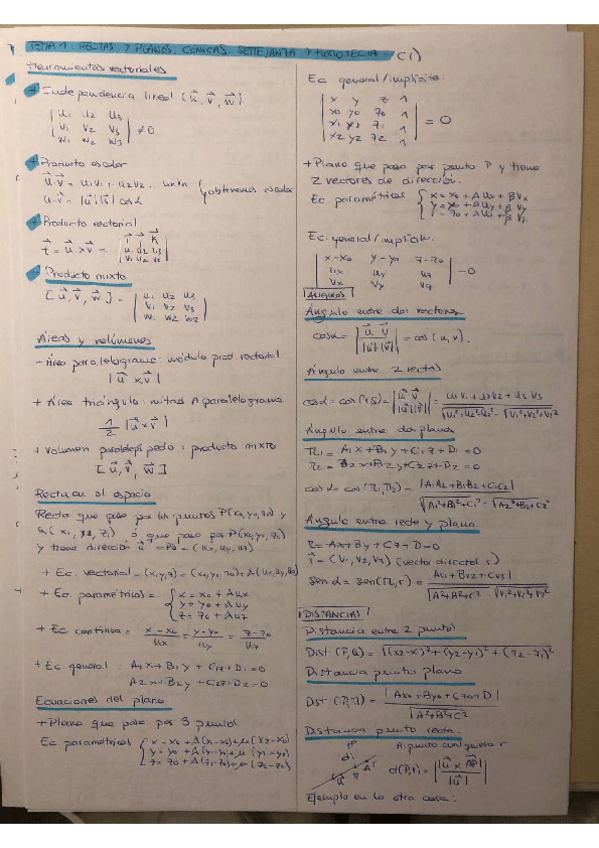 TEMA 1: RECTAS Y PLANOS, CÓNICAS, SEMEJANZA Y HOMOTECIA (1)
Herramientas vectoriales
+ Independencia lineal [u⃗, v⃗, w⃗]
| u₁ u₂ u₃ |
| v₁ v₂ v₃ | ≠ 0
| w₁ w₂ w₃ |
+ Producto escalar
u⃗·v⃗ = u₁v₁ + u₂v₂ ... unvn
u⃗·v⃗ = |u⃗||v⃗| cos α
+ Producto vectorial
t⃗ = u⃗ × v⃗ = | i⃗ j⃗ k⃗ |
| u₁ u₂ u₃ |
| v₁ v₂ v₃ |
+ Producto mixto
[u⃗, v⃗, w⃗] = | u₁ u₂ u₃ |
| v₁ v₂ v₃ |
| w₁ w₂ w₃ |
Áreas y volúmenes
- Área paralelogramo: módulo prod. vectorial
|u⃗ × v⃗|
+ Área triángulo: mitad A paralelogramo
1/2 |u⃗ × v⃗|
+ Volumen paralelepípedo: producto mixto
[u⃗, v⃗, w⃗]
Recta en el espacio
Recta que pasa por los puntos P(x₀, y₀, z₀) y
Q(x₁, y₁, z₁) ó que pasa por P(x₀, y₀, z₀)
y tiene dirección u⃗ = PQ = (ux, uy, uz)
+ Ec. vectorial = (x, y, z) = (x₀, y₀, z₀) + λ(ux, uy, uz)
+ Ec. paramétricas = { x = x₀ + λux
y = y₀ + λuy
z = z₀ + λuz
+ Ec continua = x-x₀/ux = y-y₀/uy = z-z₀/uz
+ Ec general: A₁x + B₁y + C₁z + D₁ = 0
A₂x + B₂y + C₂z + D₂ = 0
Ecuaciones del plano
+ Plano que pasa por 3 puntos
Ec paramétricas { x = x₀ + λ(x₁-x₀) + μ(x₂-x₀)
y = y₀ + λ(y₁-y₀) + μ(y₂-y₀)
z = z₀ + λ(z₁-z₀) + μ(z₂-z₀)
Ec general/implícita:
| x y z 1 |
| x₀ y₀ z₀ 1 |
| x₁ y₁ z₁ 1 | = 0
| x₂ y₂ z₂ 1 |
+ Plano que pasa por punto P y tiene
2 vectores de dirección.
Ec paramétricas { x = x₀ + λux + βvx
y = y₀ + λuy + βvy
z = z₀ + λuz + βvz
Ec. general/implícita.
| x-x₀ y-y₀ z-z₀ |
| ux uy uz | = 0
| vx vy vz |
ÁNGULOS
Ángulo entre dos vectores
cos α = |u⃗ v⃗ / |u⃗||v⃗|| = cos (u, v).
Ángulo entre 2 rectas
cos α = cos(r, s) = |u⃗ v⃗ / |u⃗||v⃗|| = u₁v₁ + u₂v₂ + u₃v₃ / √u₁²+u₂²+u₃² · √v₁²+v₂²+v₃²
Ángulo entre dos planos
π₁ = A₁x + B₁y + C₁z + D₁ = 0
π₂ = A₂x + B₂y + C₂z + D₂ = 0
cos α = cos(π₁, π₂) = |A₁A₂ + B₁B₂ + C₁C₂| / √A₁²+B₁²+C₁² · √A₂²+B₂²+C₂²
Ángulo entre recta y plano
π = Ax + By + Cz + D = 0
r⃗ = (v₁, v₂, v₃) (vector director r)
sen α = sen(π, r) = |Av₁ + Bv₂ + Cv₃| / √A²+B²+C² · √v₁²+v₂²+v₃²
DISTANCIAS
Distancia entre 2 puntos
Dist (P, Q) = √(x₂-x₁)² + (y₂-y₁)² + (z₂-z₁)²
Distancia punto plano
Dist (P, π) = |Ax₀ + By₀ + Cz₀ + D| / √A²+B²+C²
Distancia punto recta
A: punto cualquiera r
d(P, r) = |u⃗ × AP⃗| / |u⃗|
Ejemplo en la otra cara: